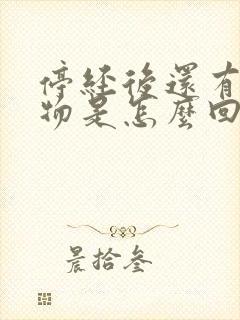 停經後還有
物是怎麼回
晨拾叁